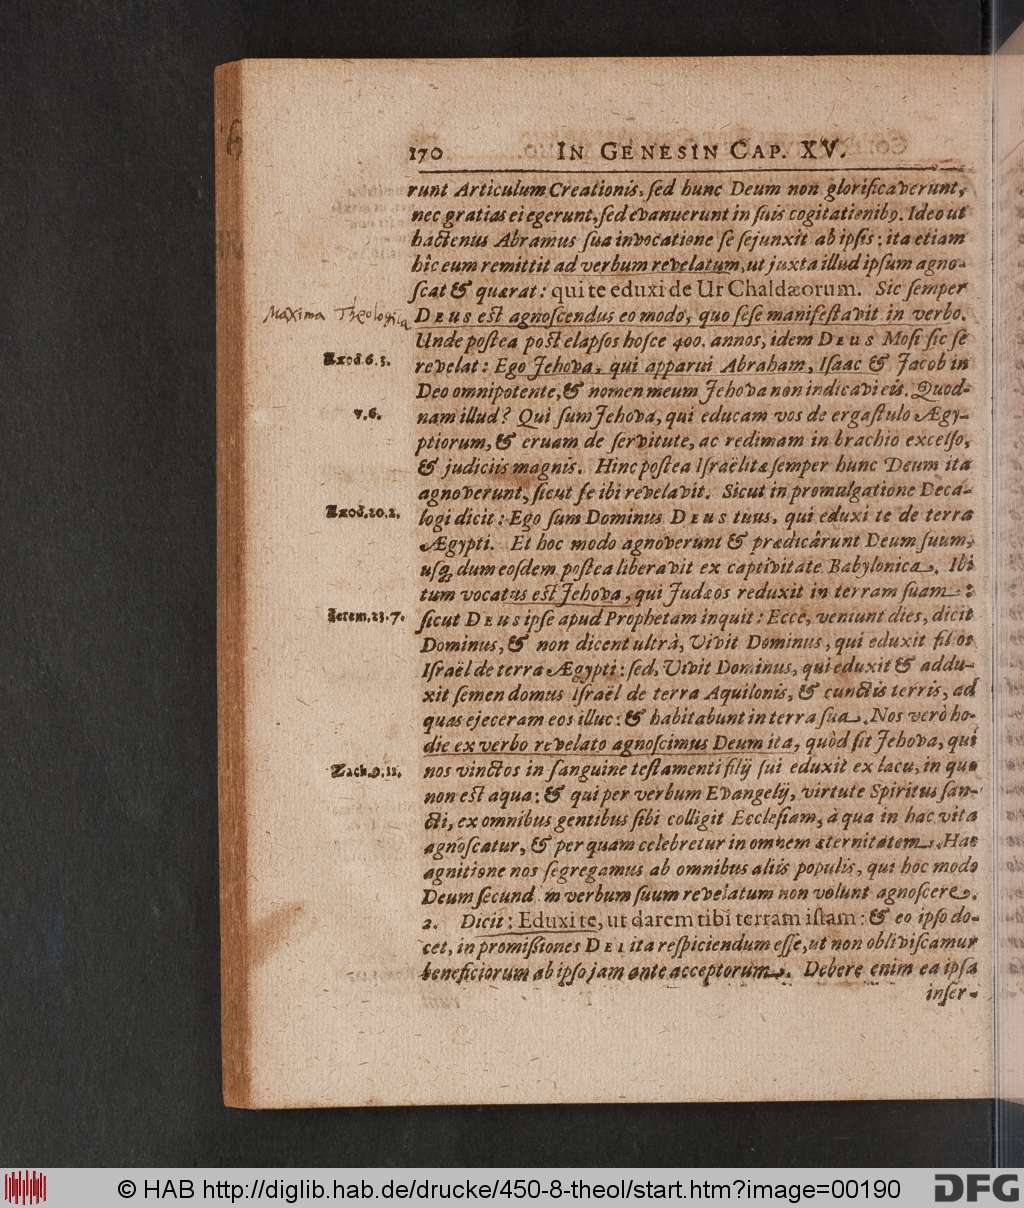 170 IN GENESIN CAP. XV.
runt Articulum Creationis, ſed hunc Deum non glorificaverunt,
nec gratias ei egerunt, ſed evanuerunt in ſuis cogitationibꝰ. Ideo ut
hactenus Abramus ſua invocatione ſe ſejunxit ab ipſis: ita etiam
hîc eum remittit ad verbum revelatum, ut juxta illud ipſum agno-
ſcat & quærat: qui te eduxi de Ur Chaldæorum. Sic ſemper
Maxima Theologiæ
DEUS eſt agnoſcendus eo modo, quo ſeſe manifeſtavit in verbo.
Unde poſtea poſt elapſos hoſce 400. annos, idem DEUS Moſi ſic ſe
Exod. 6. 3.
revelat: Ego Jehova, qui apparui Abraham, Iſaac & Jacob in
Deo omnipotente, & nomen meum Jehova non indicavi eis. Quod-
v. 6.
nam illud? Qui ſum Jehova, qui educam vos de ergaſtulo Ægy-
ptiorum, & eruam de ſervitute, ac redimam in brachio excelſo,
& judiciis magnis. Hinc poſtea Iſraëlitæ ſemper hunc Deum ita
agnoverunt, ſicut ſe ibi revelavit. Sicut in promulgatione Deca-
Exod. 20. 2.
logi dicit: Ego ſum Dominus DEUS tuus, qui eduxi te de terra
Ægypti. Et hoc modo agnoverunt & prædicârunt Deum ſuum,
uſq; dum eoſdem poſtea liberavit ex captivitate Babylonica. Ibi
tum vocatus eſt Jehova, qui Judæos reduxit in terram ſuam:
Jerem. 23. 7.
ſicut DEUS ipſe apud Prophetam inquit: Ecce, veniunt dies, dicit
Dominus, & non dicent ultrà, Vivit Dominus, qui eduxit filios
Iſraël de terra Ægypti: ſed, Vivit Dominus, qui eduxit & addu-
xit ſemen domus Iſraël de terra Aquilonis, & cunctis terris, ad
quas ejeceram eos illuc: & habitabunt in terra ſua. Nos verò ho-
die ex verbo revelato agnoſcimus Deum ita, quòd ſit Jehova, qui
Zach. 9. 11.
nos vinctos in ſanguine teſtamenti filij ſui eduxit ex lacu, in quo
non eſt aqua: & qui per verbum Evangelij, virtute Spiritus ſan-
cti, ex omnibus gentibus ſibi colligit Eccleſiam, à qua in hac vita
agnoſcatur, & per quam celebretur in omnem æternitatem. Hac
agnitione nos ſegregamus ab omnibus aliis populis, qui hoc modo
Deum ſecund m verbum ſuum revelatum non volunt agnoſcere.
2. Dicit: Eduxi te, ut darem tibi terram iſtam: & eo ipſo do-
cet, in promiſſiones DEI ita reſpiciendum eſſe, ut non obliviſcamur
beneficiorum ab ipſo jam ante acceptorum. Debere enim ea ipſa
inſer-
© HAB http://diglib.hab.de/drucke/450-8-theol/start.htm?image=00190
DFG